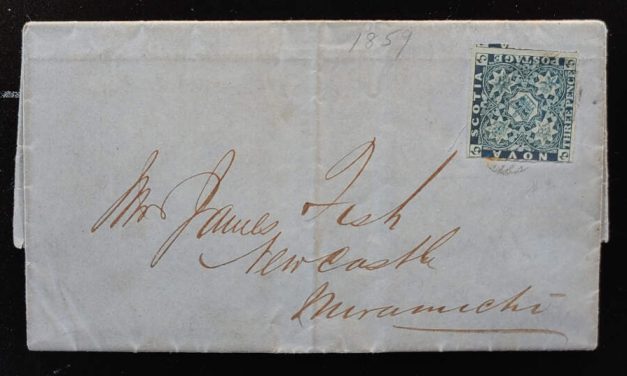 1859
NOVA SCOTIA POSTAGE THREE PENCE
Mr James Fish
Newcastle
Miramichi